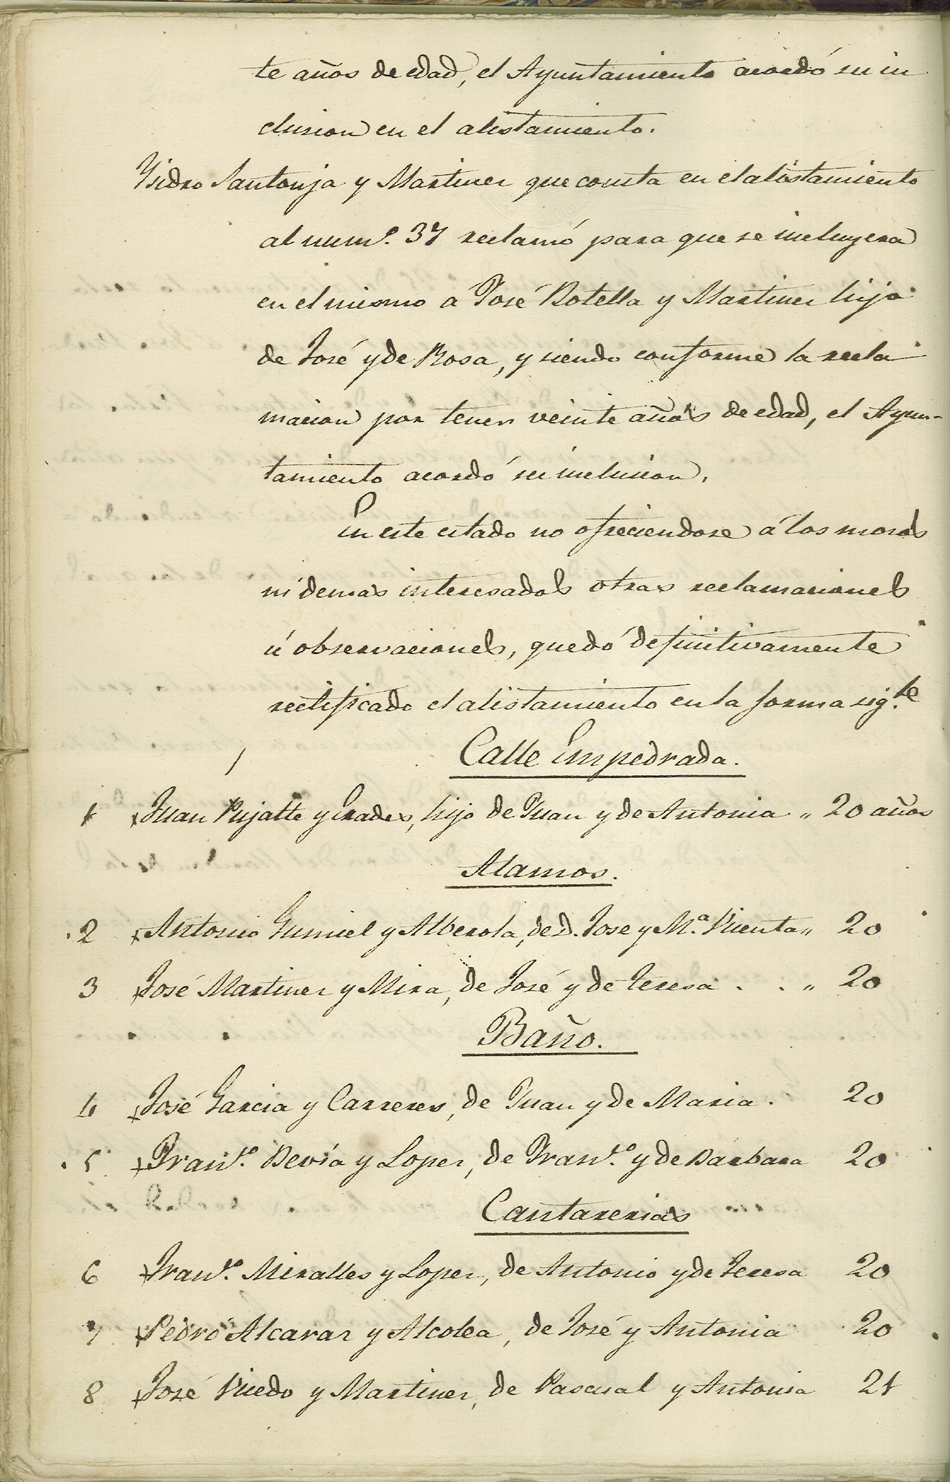 te años de edad, el Ayuntamiento acordó su in
clusion en el alistamiento.
Ysidro Santonja y Martinez que consta en el alistamiento
al num.º 37 reclamó para que se incluyera
en el mismo a José Botella y Martinez hijo
de José y de Rosa, y siendo conforme la recla
macion por tener veinte años de edad, el Ayun-
tamiento acordó su inclusion.
En este estado no ofreciendose á los mozos
ni demas interesados otras reclamaciones
ú observaciones, quedó definitivamente
rectificado el alistamiento en la forma sig.te
Calle Empedrada.
1 Juan Pujalte y Prades, hijo de Juan y de Antonia „ 20 años
Alamos.
2 Antonio Gumiel y Alberola, de D. Jose y M.ª Vicenta „ 20
3 José Martinez y Mira, de José y de Teresa . . „ 20
Baño.
4 José Garcia y Carreres, de Juan y de Maria . 20
5 Fran.co Beviá y Lopez, de Fran.co y de Bárbara 20
Cantarerias
6 Fran.co Miralles y Lopez, de Antonio y de Teresa 20
7 Pedro Alcaraz y Alcolea, de José y Antonia 20
8 José Picedo y Martinez, de Pascual y Antonia 21